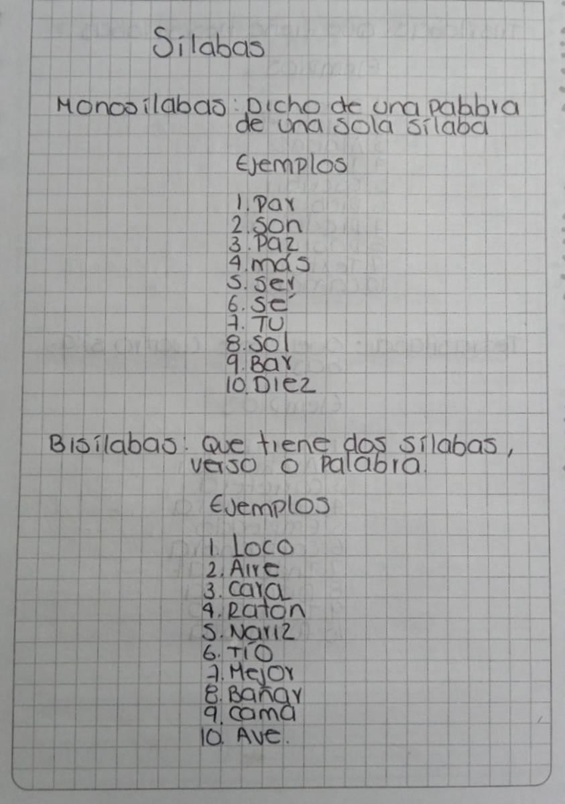 Sílabas
Monosílabas: Dicho de una palabra
de una sola sílaba
Ejemplos
1. Par
2. Son
3. Paz
4. más
5. Ser
6. Sé
7. TU
8. Sol
9. Bar
10. Diez
Bisílabas: Que tiene dos sílabas,
verso o palabra.
Ejemplos
1. Loco
2. Aire
3. Cara
4. Raton
5. Nariz
6. Tío
7. Mejor
8. Bañar
9. Cama
10. Ave.